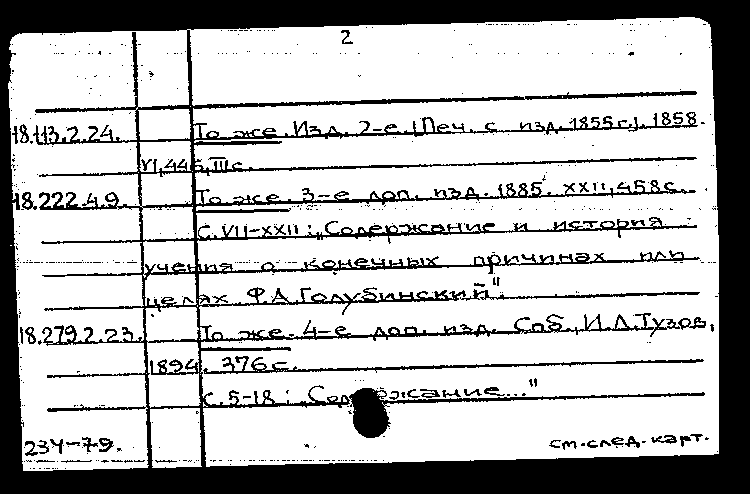 2
18.113.2.24. То же. Изд. 2-е. [Печ. с изд. 1855 г.]. 1858.
VI, 446, III с.
18.222.4.9. То же. 3-е доп. изд. 1885. XXII, 458 с.
С. VII-XXII: „Содержание и история
учения о конечных причинах или
целях Ф.А. Голубинский".
18.279.2.23. То же. 4-е доп. изд. Спб., И.Л. Тузов,
1894. 376 с.
С. 5-18: „Содержание..."
234-79. см. след. карт.